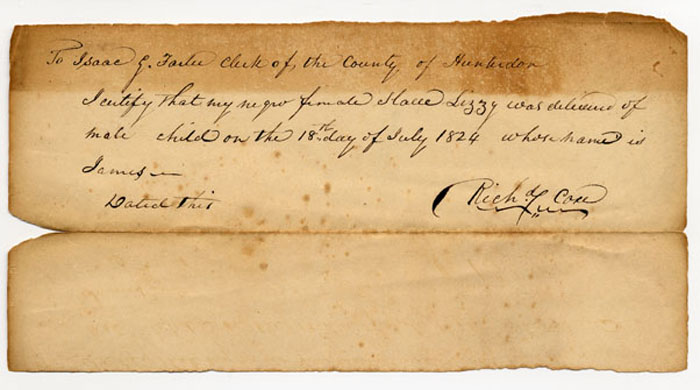 To Isaac G. Farlee Clerk of the County of Hunterdon
I certify that my negro female Slave Lizzy was delivered of
male child on the 18th day of July 1824 whose name is
James
Dated this
Richd Coxe